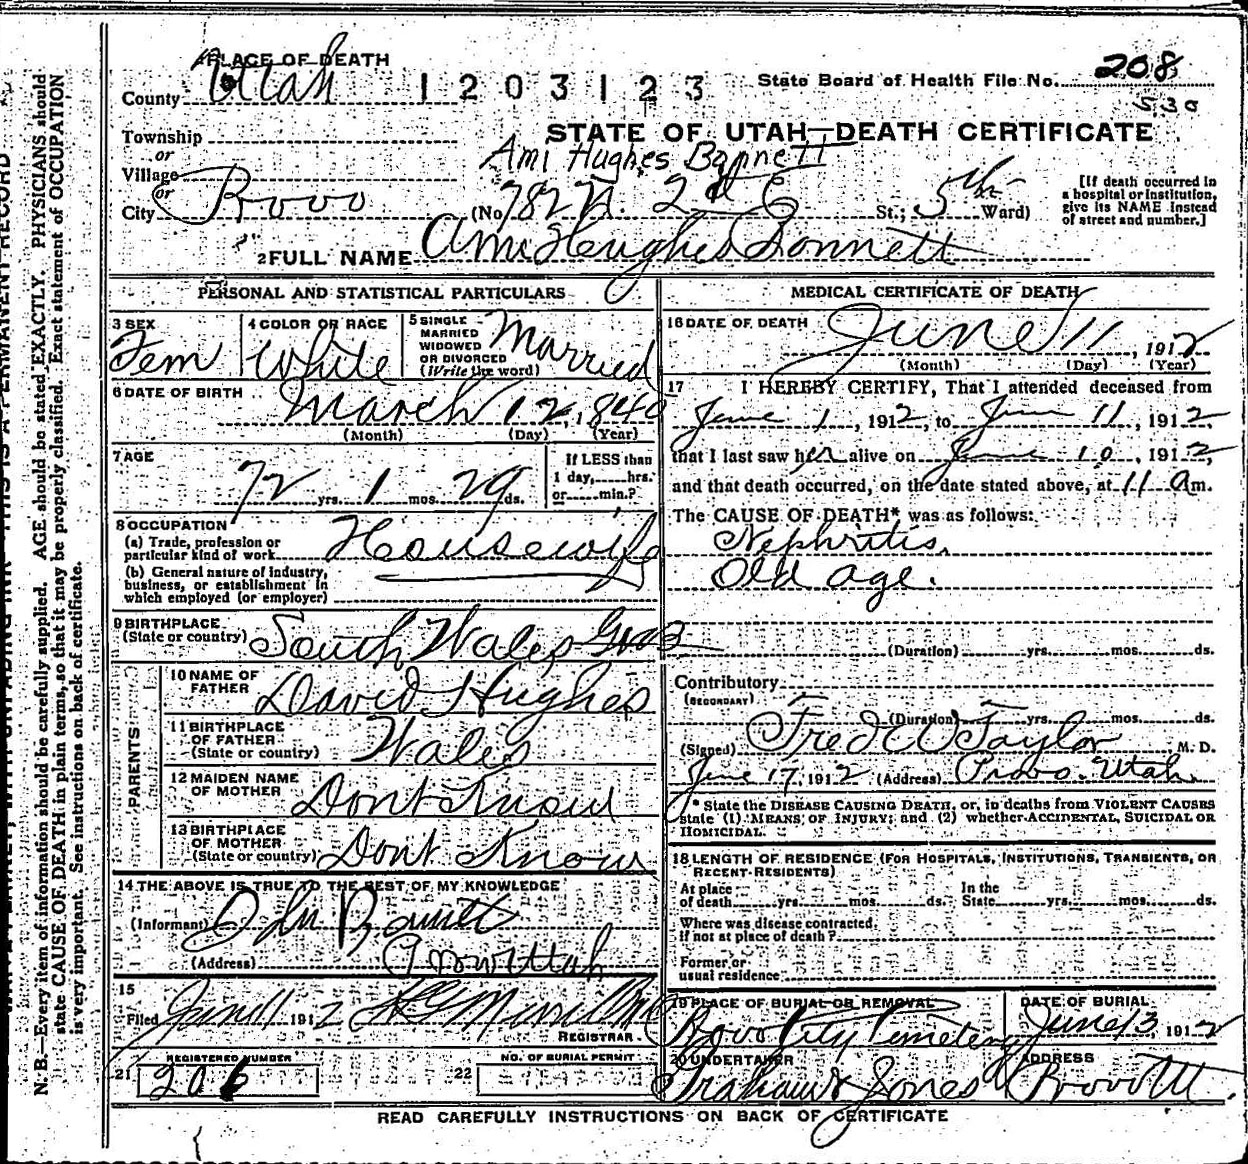 PLACE OF DEATH
County Utah
1203123
State Board of Health File No. 208
530
STATE OF UTAH—DEATH CERTIFICATE
Township
or
Village
or
City Provo
Ami Hughes Bonnett
(No. 782 N. 2d E St.; 5th Ward)
[If death occurred in
a hospital or institution,
give its NAME instead
of street and number.]
2 FULL NAME Ami Hughes Bonnett
PERSONAL AND STATISTICAL PARTICULARS
3 SEX
Fem
4 COLOR OR RACE
White
5 SINGLE
MARRIED
WIDOWED
OR DIVORCED
(Write the word)
Married
6 DATE OF BIRTH March 12, 1840
(Month) (Day) (Year)
7 AGE
72 yrs. 1 mos. 29 ds.
If LESS than
1 day, hrs.
or min.?
8 OCCUPATION
(a) Trade, profession or
particular kind of work Housewife
(b) General nature of industry,
business, or establishment in
which employed (or employer)
9 BIRTHPLACE
(State or country) South Wales
PARENTS
10 NAME OF
FATHER David Hughes
11 BIRTHPLACE
OF FATHER
(State or country) Wales
12 MAIDEN NAME
OF MOTHER Dont Know
13 BIRTHPLACE
OF MOTHER
(State or country) Dont Know
14 THE ABOVE IS TRUE TO THE BEST OF MY KNOWLEDGE
(Informant) John Bonnett
(Address) Provo Utah
15
Filed June 11 1912
REGISTRAR.
REGISTERED NUMBER
21 206
NO. OF BURIAL PERMIT
22
MEDICAL CERTIFICATE OF DEATH
16 DATE OF DEATH June 11, 1912
(Month) (Day) (Year)
17 I HEREBY CERTIFY, That I attended deceased from
June 1, 1912, to June 11, 1912,
that I last saw her alive on June 10, 1912,
and that death occurred, on the date stated above, at 11 am.
The CAUSE OF DEATH* was as follows:
Nephritis,
Old age.
(Duration) yrs. mos. ds.
Contributory
(SECONDARY)
(Duration) yrs. mos. ds.
(Signed) Fred W Taylor M. D.
June 17, 1912 (Address) Provo, Utah.
* State the DISEASE CAUSING DEATH, or, in deaths from VIOLENT CAUSES
state (1) MEANS OF INJURY; and (2) whether ACCIDENTAL, SUICIDAL OR
HOMICIDAL.
18 LENGTH OF RESIDENCE (FOR HOSPITALS, INSTITUTIONS, TRANSIENTS, OR
RECENT RESIDENTS)
At place
of death yrs. mos. ds.
In the
State yrs. mos. ds.
Where was disease contracted
if not at place of death?
Former or
usual residence
19 PLACE OF BURIAL OR REMOVAL
Provo City Cemetery
DATE OF BURIAL
June 13 1912
20 UNDERTAKER
Graham & Jones
ADDRESS
Provo Ut
READ CAREFULLY INSTRUCTIONS ON BACK OF CERTIFICATE
N. B.—Every item of information should be carefully supplied. AGE should be stated EXACTLY. PHYSICIANS should
state CAUSE OF DEATH in plain terms, so that it may be properly classified. Exact statement of OCCUPATION
is very important. See instructions on back of certificate.